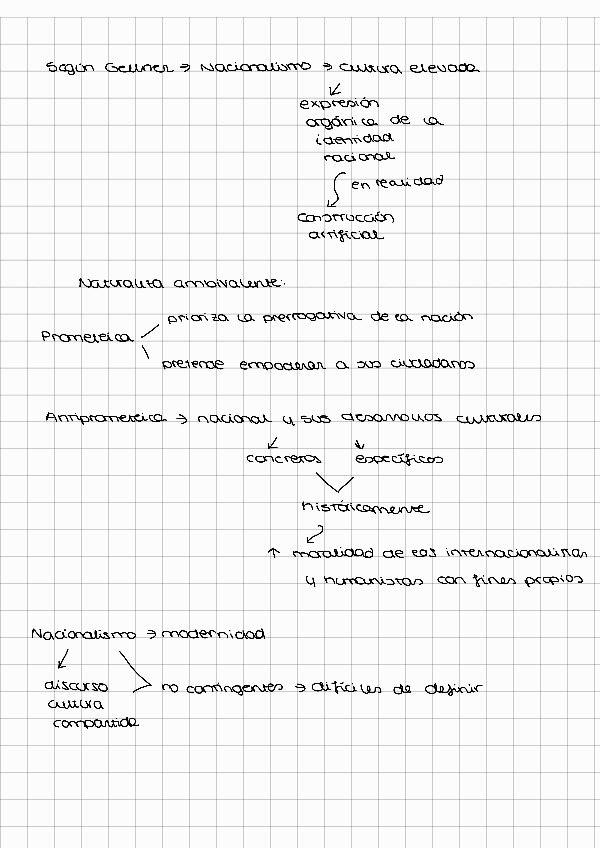 Según Gellner → Nacionalismo → cultura elevada
expresión
orgánica de la
identidad
nacional
en realidad
construcción
artificial
Naturaliza ambivalente:
prioriza la prerrogativa de la nación
Prometeica
pretende empoderar a sus ciudadanos
Antiprometeica → nacional y sus desarrollos culturales
concretos específicos
históricamente
↑ moralidad de los internacionalistas
y humanistas con fines propios
Nacionalismo → modernidad
discurso no contingentes → difíciles de definir
cultura
compartida